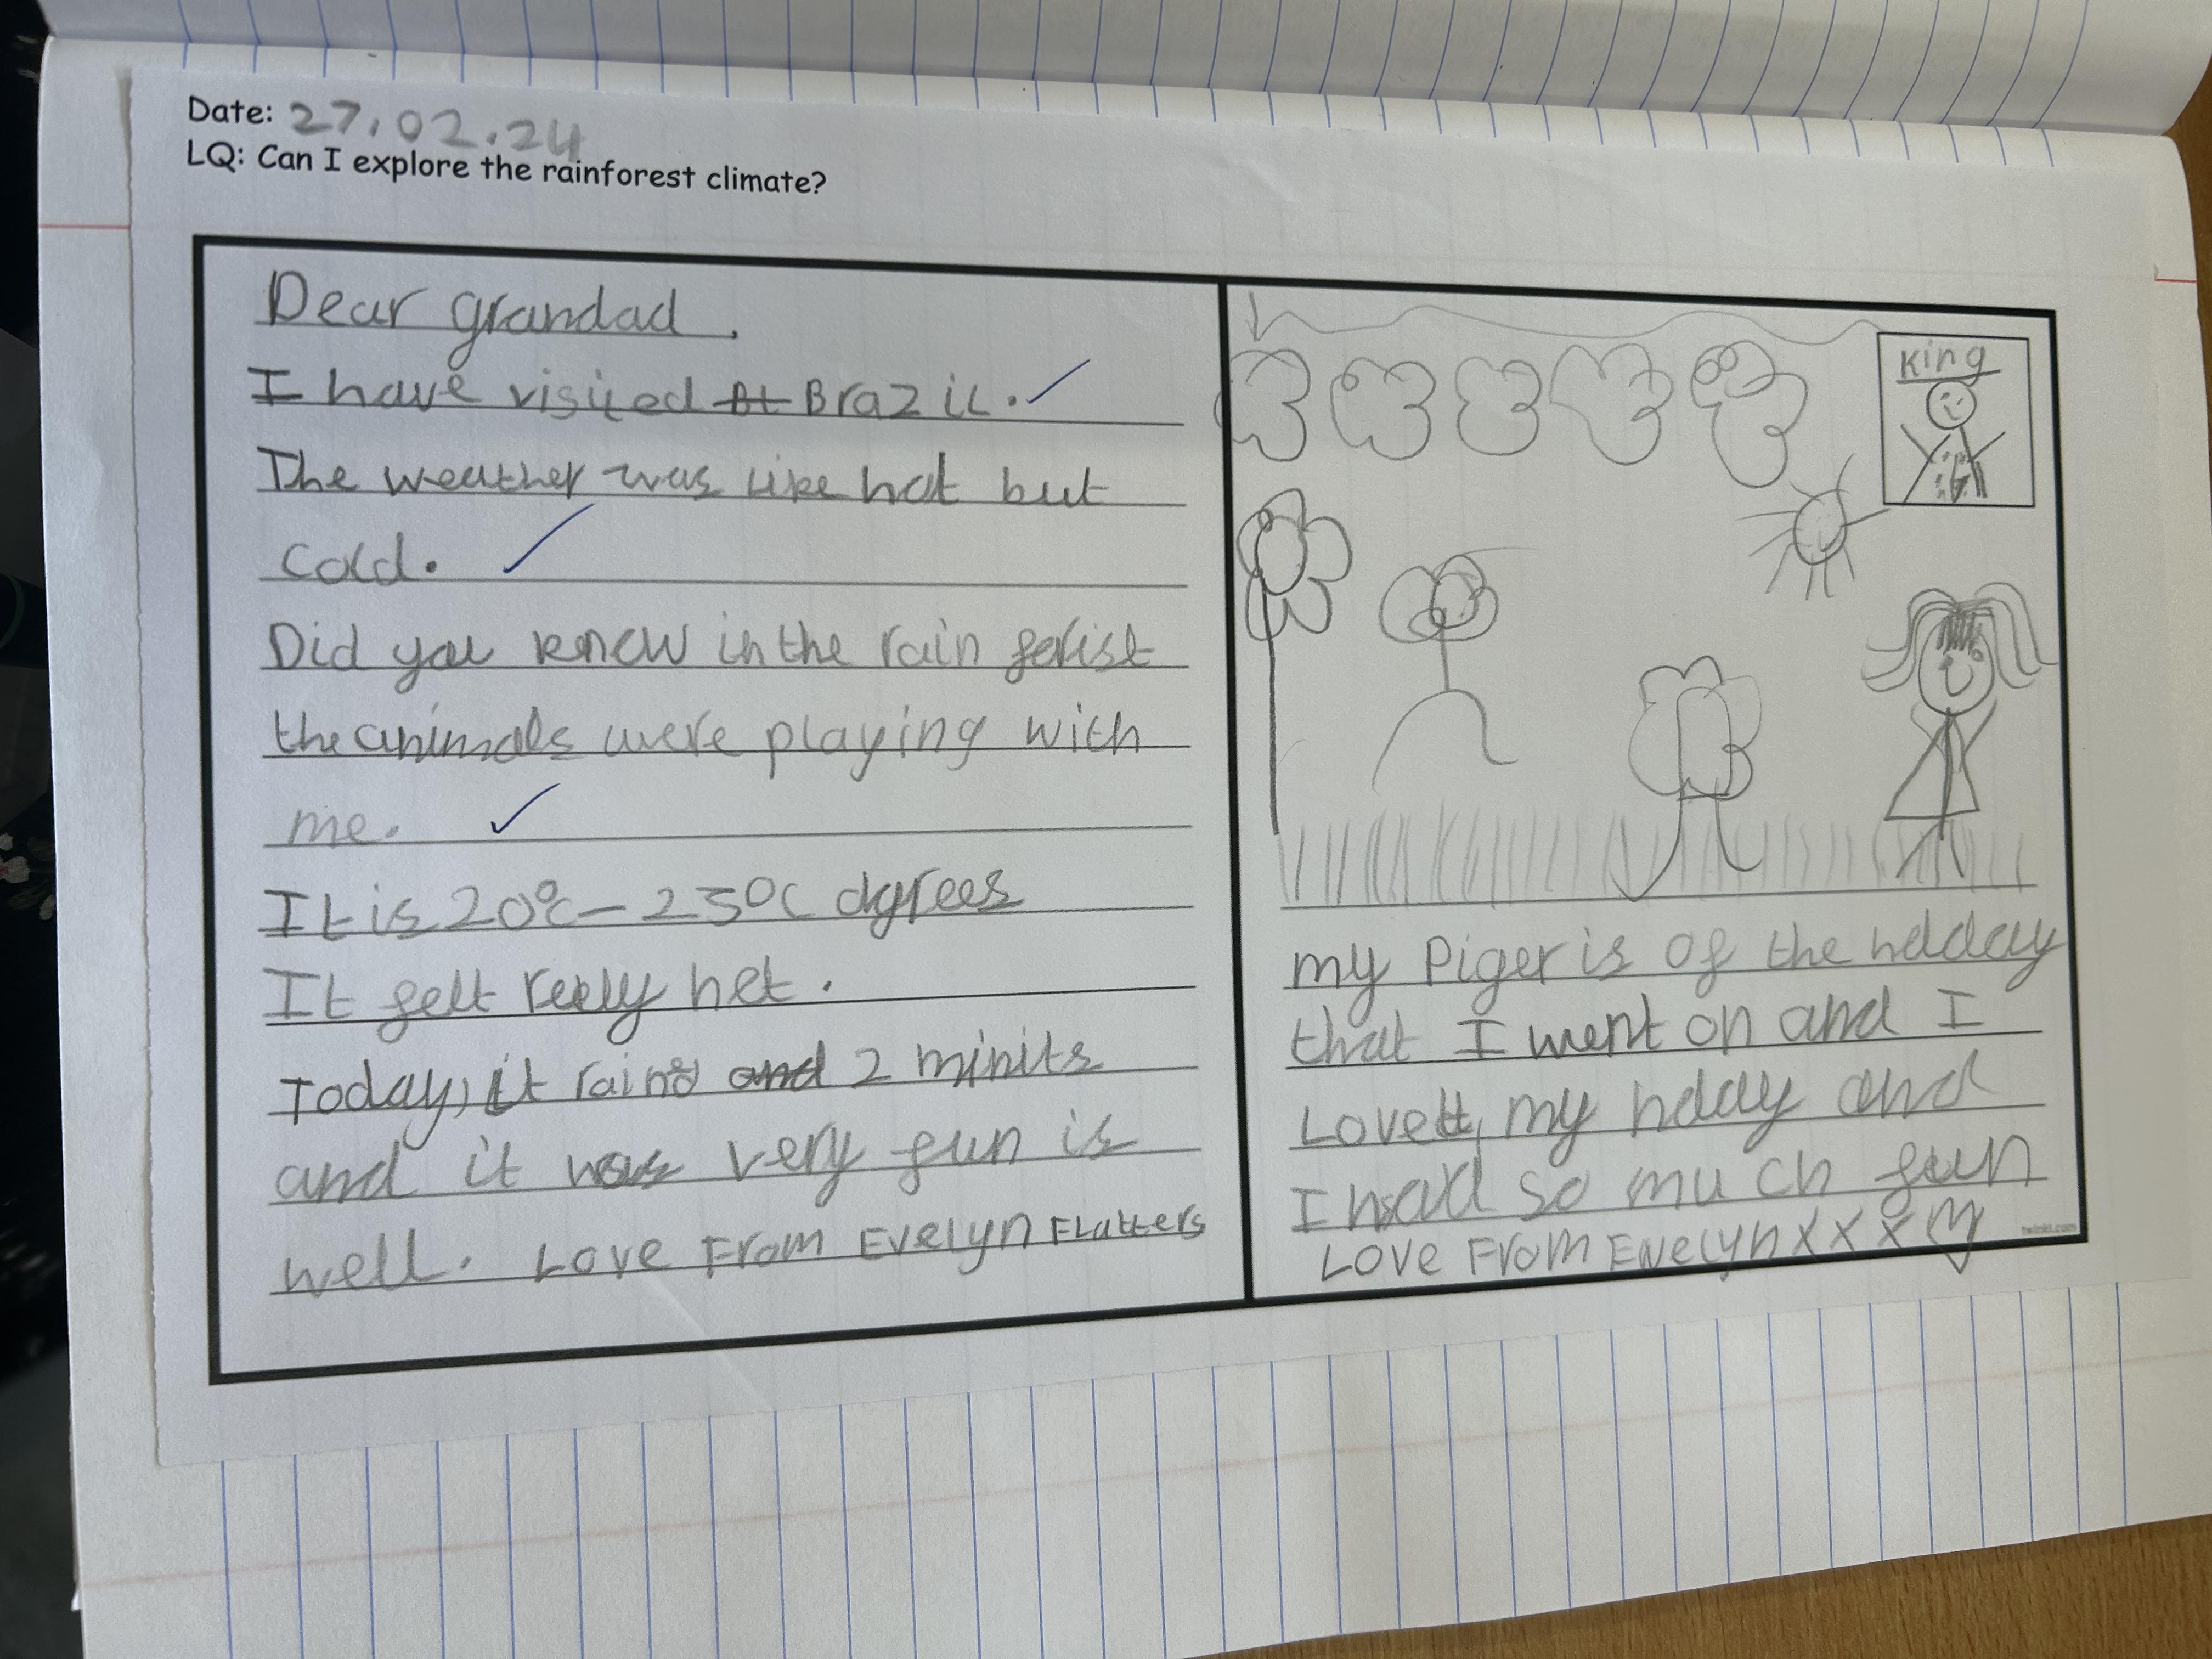 Date: 27.02.24
LQ: Can I explore the rainforest climate?
Dear grandad.
I have visited Bt Brazil.
The weather was like hot but
cold.
Did you know in the rain forist
the animals were playing with
me.
It is 20°c - 25°C dgrees
It felt reely hot.
Today, it rained and 2 minits
and it was very fun is
well. Love From Evelyn Flatters
King
my Piger is of the holday
that I went on and I
Love my hoday and
I had so much fun
Love From Evelyn x x x
twinkl.com